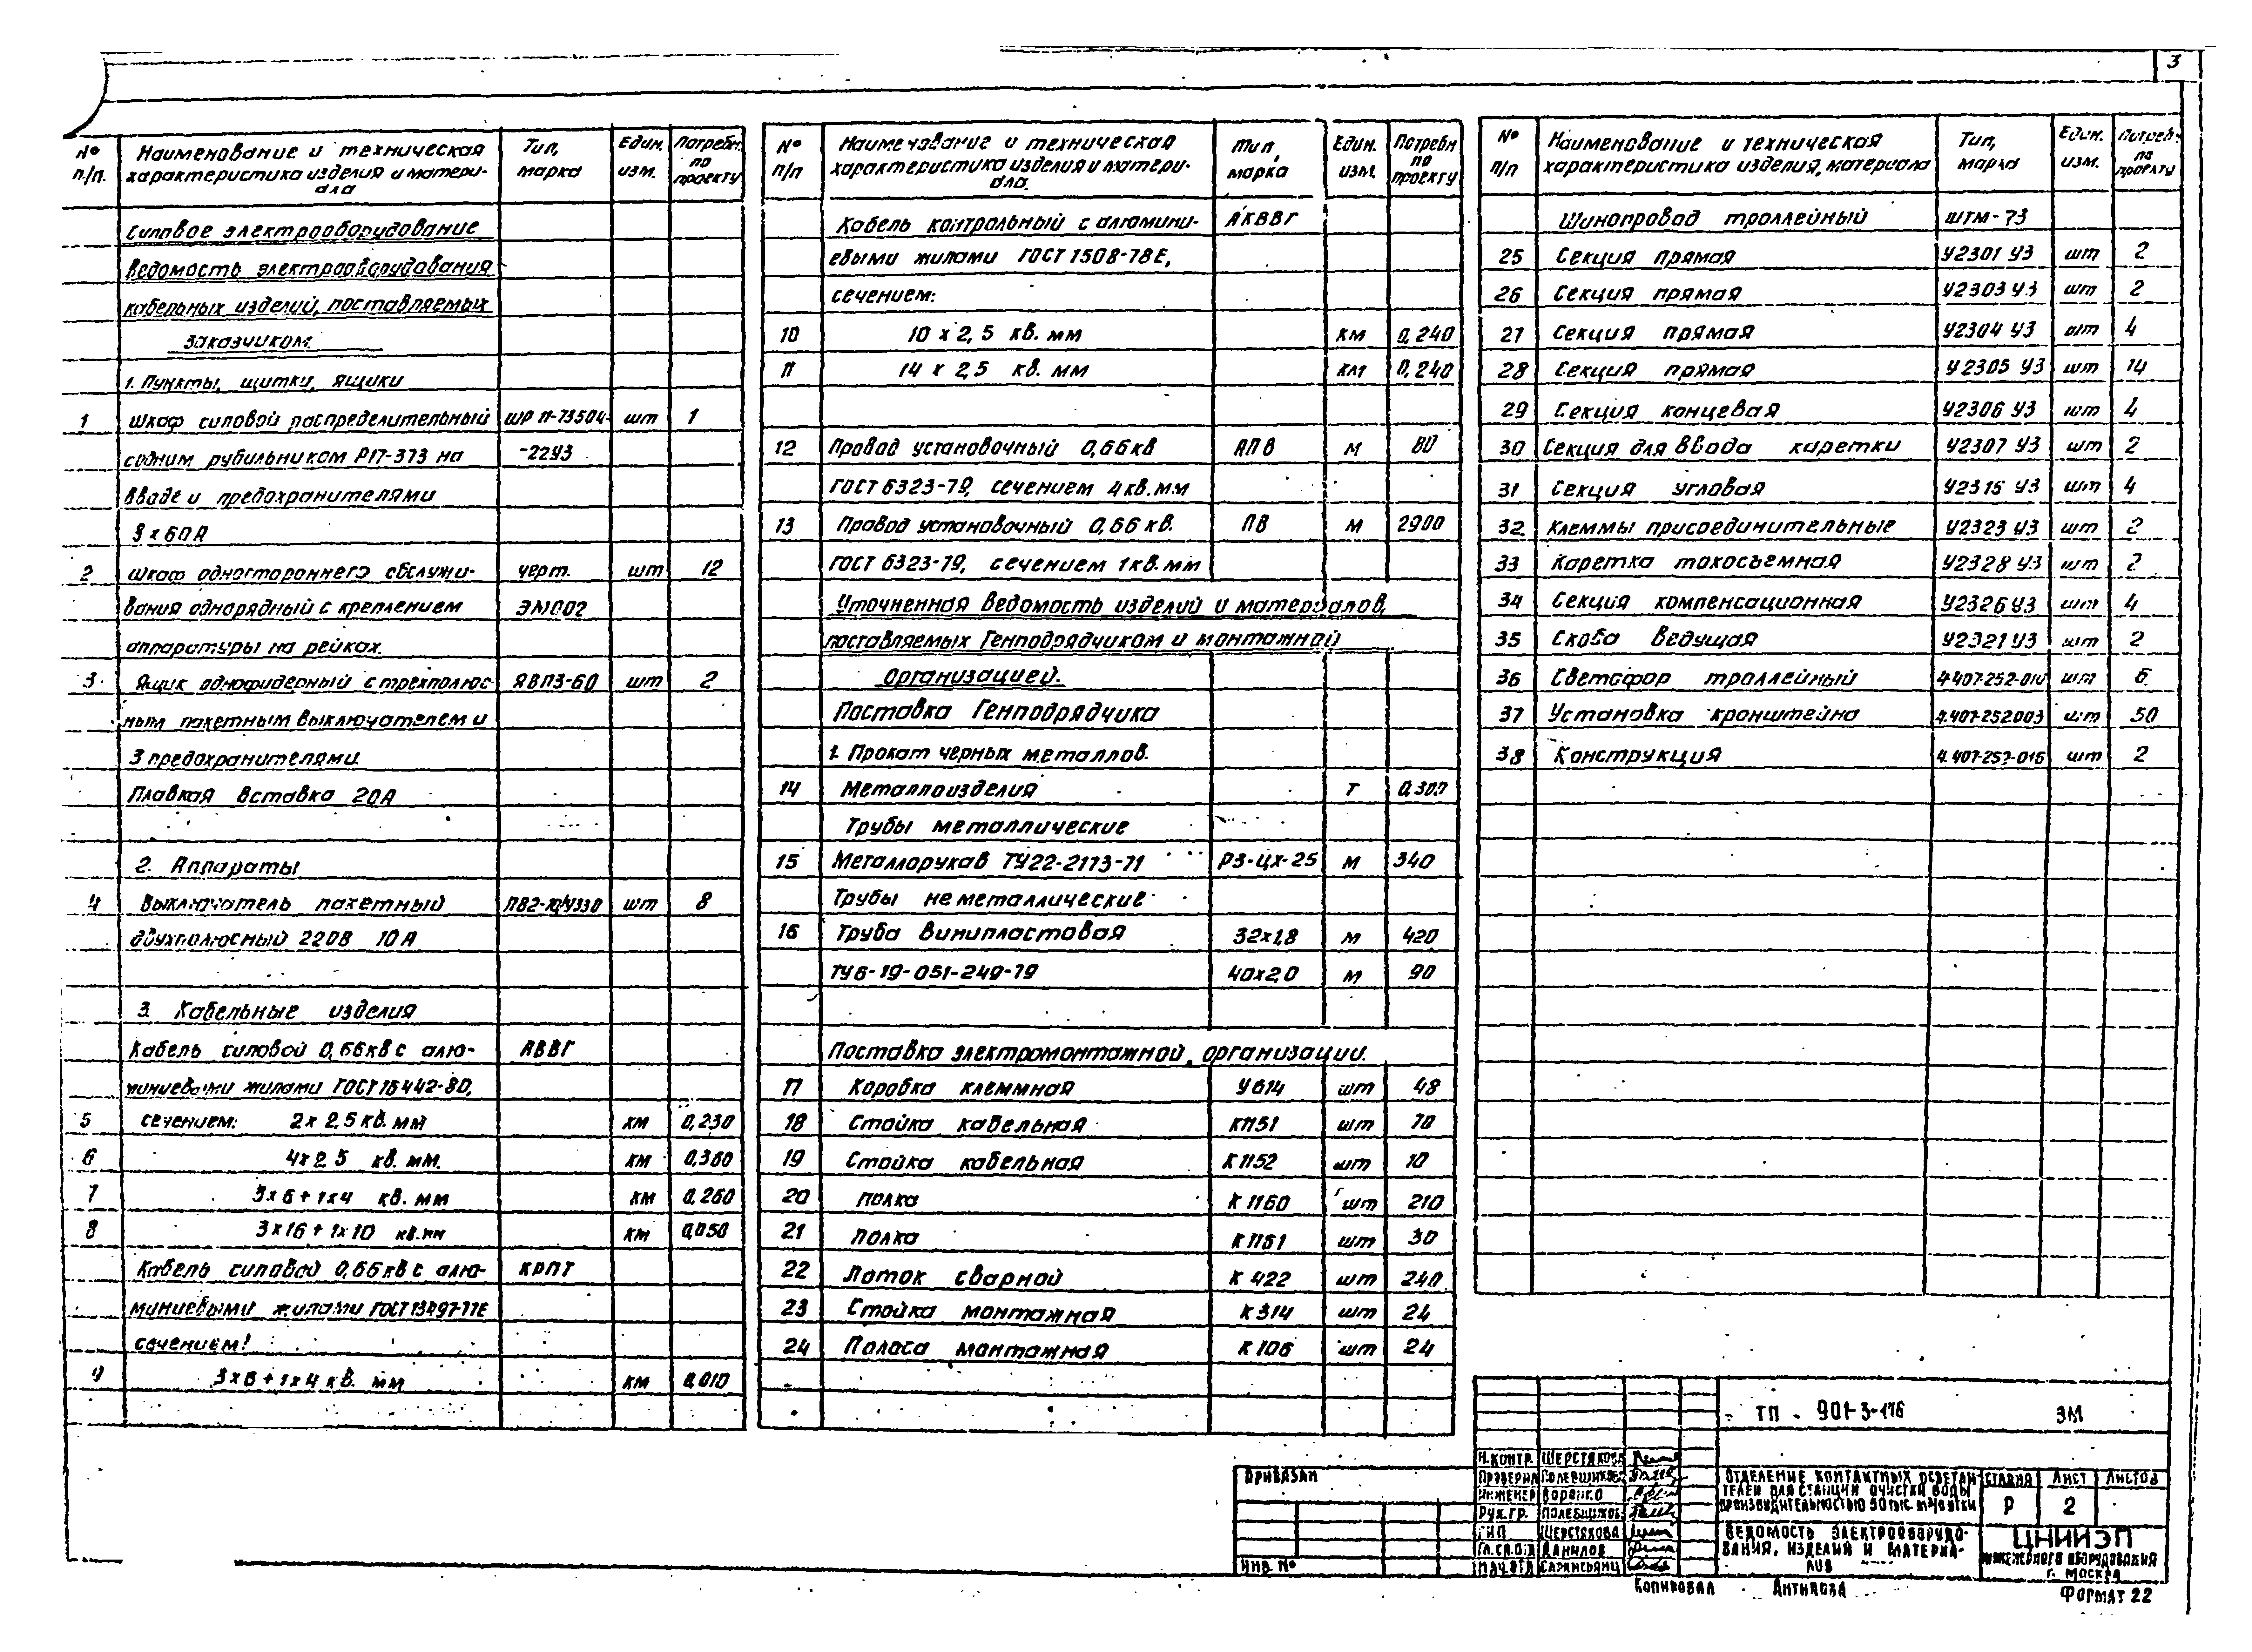 3
№ п/п. Наименование и техническая характеристика изделия и матери-ала Тип, марка Един. изм. Потребн. по проекту
Силовое электрооборудование
Ведомость электрооборудования
кабельных изделий, поставляемых
заказчиком.
1. Пункты, щитки, ящики
1 Шкаф силовой распределительный ШР 11-73504- шт 1
содним рубильником Р17-373 на -22У3
вводе и предохранителями
8 х 60А
2 шкаф одностороннего обслужи- черт. шт 12
вания однорядный с креплением ЭМ002
аппаратуры на рейках.
3 Ящик однофидерный с трехполюс- ЯВПЗ-60 шт 2
ным пакетным выключателем и
3 предохранителями.
Плавкая вставка 20А
2. Аппараты
4 Выключатель пакетный шт 8
двухполюсный 220В 10А
3. Кабельные изделия
Кабель силовой 0,66кв с алю- АВВГ
миниевыми жилами ГОСТ16442-80,
5 сечением: 2х 2,5 кв. мм км 0,230
6 4х2,5 кв. мм. км 0,360
7 3х6+1х4 кв. мм км 0,260
8 3х16+1х10 кв.мм км 0,050
Кабель силовой 0,66кв с алю- КРПТ
миниевыми жилами ГОСТ13497-77Е
сечением:
9 3х6+1х4 кв. мм км 0,010
№ п/п Наименование и техническая характеристика изделия и матери-ала. Тип, марка Един. изм. Потребн по проекту
Кабель контрольный с алюмини- АКВВГ
евыми жилами ГОСТ 1508-78Е,
сечением:
10 10 х 2,5 кв. мм км 0,240
11 14 х 2,5 кв. мм км 0,240
12 Провод установочный 0,66кв АПВ м 80
ГОСТ 6323-79, сечением 4кв.мм
13 Провод установочный 0,66 кв. ПВ м 2900
ГОСТ 6323-79, сечением 1кв.мм
Уточненная ведомость изделий и материалов,
поставляемых Генподрядчиком и монтажной
организацией.
Поставка Генподрядчика
1. Прокат черных металлов.
14 Металлоизделия т 0,300
Трубы металлические
15 Металлорукав ТУ22-2173-71 РЗ-ЦХ-25 м 340
Трубы неметаллические
16 Труба винипластовая 32х1,8 м 420
ТУ6-19-051-249-79 40х2,0 м 90
Поставка электромонтажной организации.
17 Коробка клеммная У614 шт 48
18 Стойка кабельная К1151 шт 70
19 Стойка кабельная К1152 шт 10
20 полка К 1160 шт 210
21 полка К 1161 шт 30
22 Лоток сварной К 422 шт 240
23 Стойка монтажная К 314 шт 24
24 Полоса монтажная К 106 шт 24
№ п/п Наименование и техническая характеристика изделия, материала Тип, марка Един. изм. Потребн. по проекту
Шинопровод троллейный ШТМ-73
25 Секция прямая У2301 У3 шт 2
26 Секция прямая У2303 У3 шт 2
27 Секция прямая У2304 У3 шт 4
28 Секция прямая У2305 У3 шт 14
29 Секция концевая У2306 У3 шт 4
30 Секция для ввода каретки У2307 У3 шт 2
31 Секция угловая У2315 У3 шт 4
32 Клеммы присоединительные У2323 У3 шт 2
33 Каретка токосъемная У2328 У3 шт 2
34 Секция компенсационная У2326У3 шт 4
35 Скоба ведущая У2321 У3 шт 2
36 Светофор троллейный 4.407-252-010 шт 6
37 Установка кронштейна 4.407-252.003 шт 50
38 Конструкция 4.407-252-016 шт 2
ТП - 901-3-176 ЭМ
Привязан
Инв. №
Н.контр. Шерстякова
Проверил Полевщиков
Инженер
Рук.гр. Полевщиков
ГИП Шерстякова
Гл.сп.отд Данилов
Нач.отд
Отделение контактных осветли-
телей для станции очистки воды
производительностью 50 тыс. м³/сутки
Стадия Лист Листов
Р 2
Ведомость электрооборудо-
вания, изделий и материа-
лов
ЦНИИЭП
инженерного оборудования
г. Москва
Копировал Антипова
Формат 22